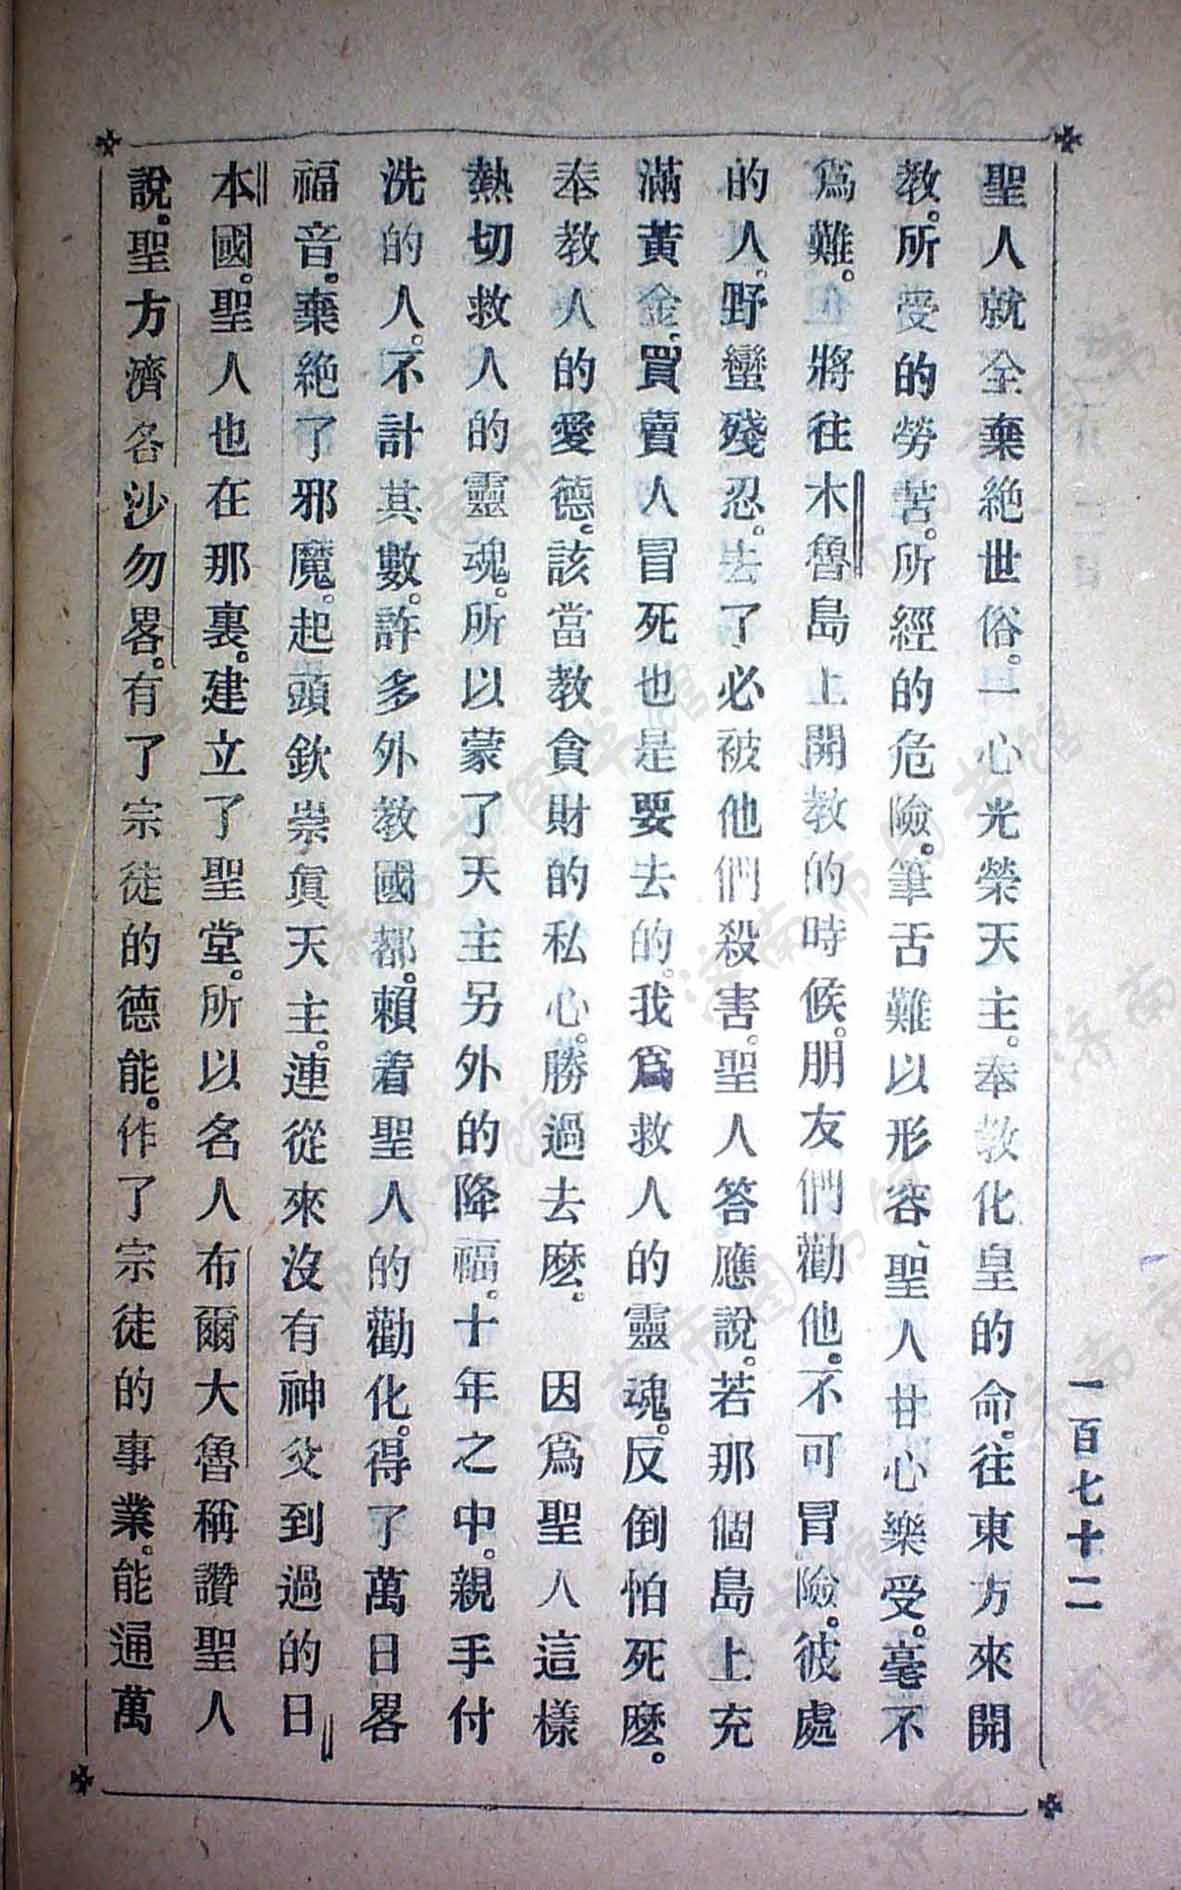 聖人就全棄絶世俗。一心光榮天主。奉教化皇的命。往東方來開
教。所受的勞苦。所經的危險。筆舌難以形容、聖人甘心樂受。毫不
爲難。他將往木魯島上開教的時候。朋友們勸他。不可冒險。彼處
的人。野蠻殘忍。去了必被他們殺害。聖人答應說。若那個島上充
滿黃金、買賣人冒死也是要去的。我爲救人的靈魂。反倒怕死麽。
奉教人的愛德。該當教貪財的私心。勝過去麽。 因爲聖人這樣
熱切救人的靈魂。所以蒙了天主另外的降福。十年之中。親手付
洗的人。不計其數。許多外教國都。賴着聖人的勸化。得了萬日畧
福音。棄絶了邪魔。起頭欽崇眞天主。連從來沒有神父到過的日
本國。聖人也在那裏。建立了聖堂。所以名人布爾大魯稱讚聖人
說。聖方濟各沙勿畧。有了宗徒的德能。作了宗徒的事業。能通萬
一百七十二
济南市图书馆